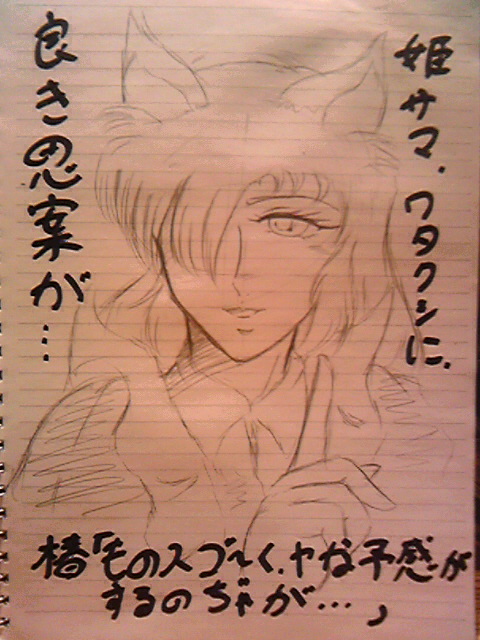 姫サマ、ワタクシに、
良きの心案が…
椿「ものスゴ〜く、ヤな予感が
するのぢゃが…」